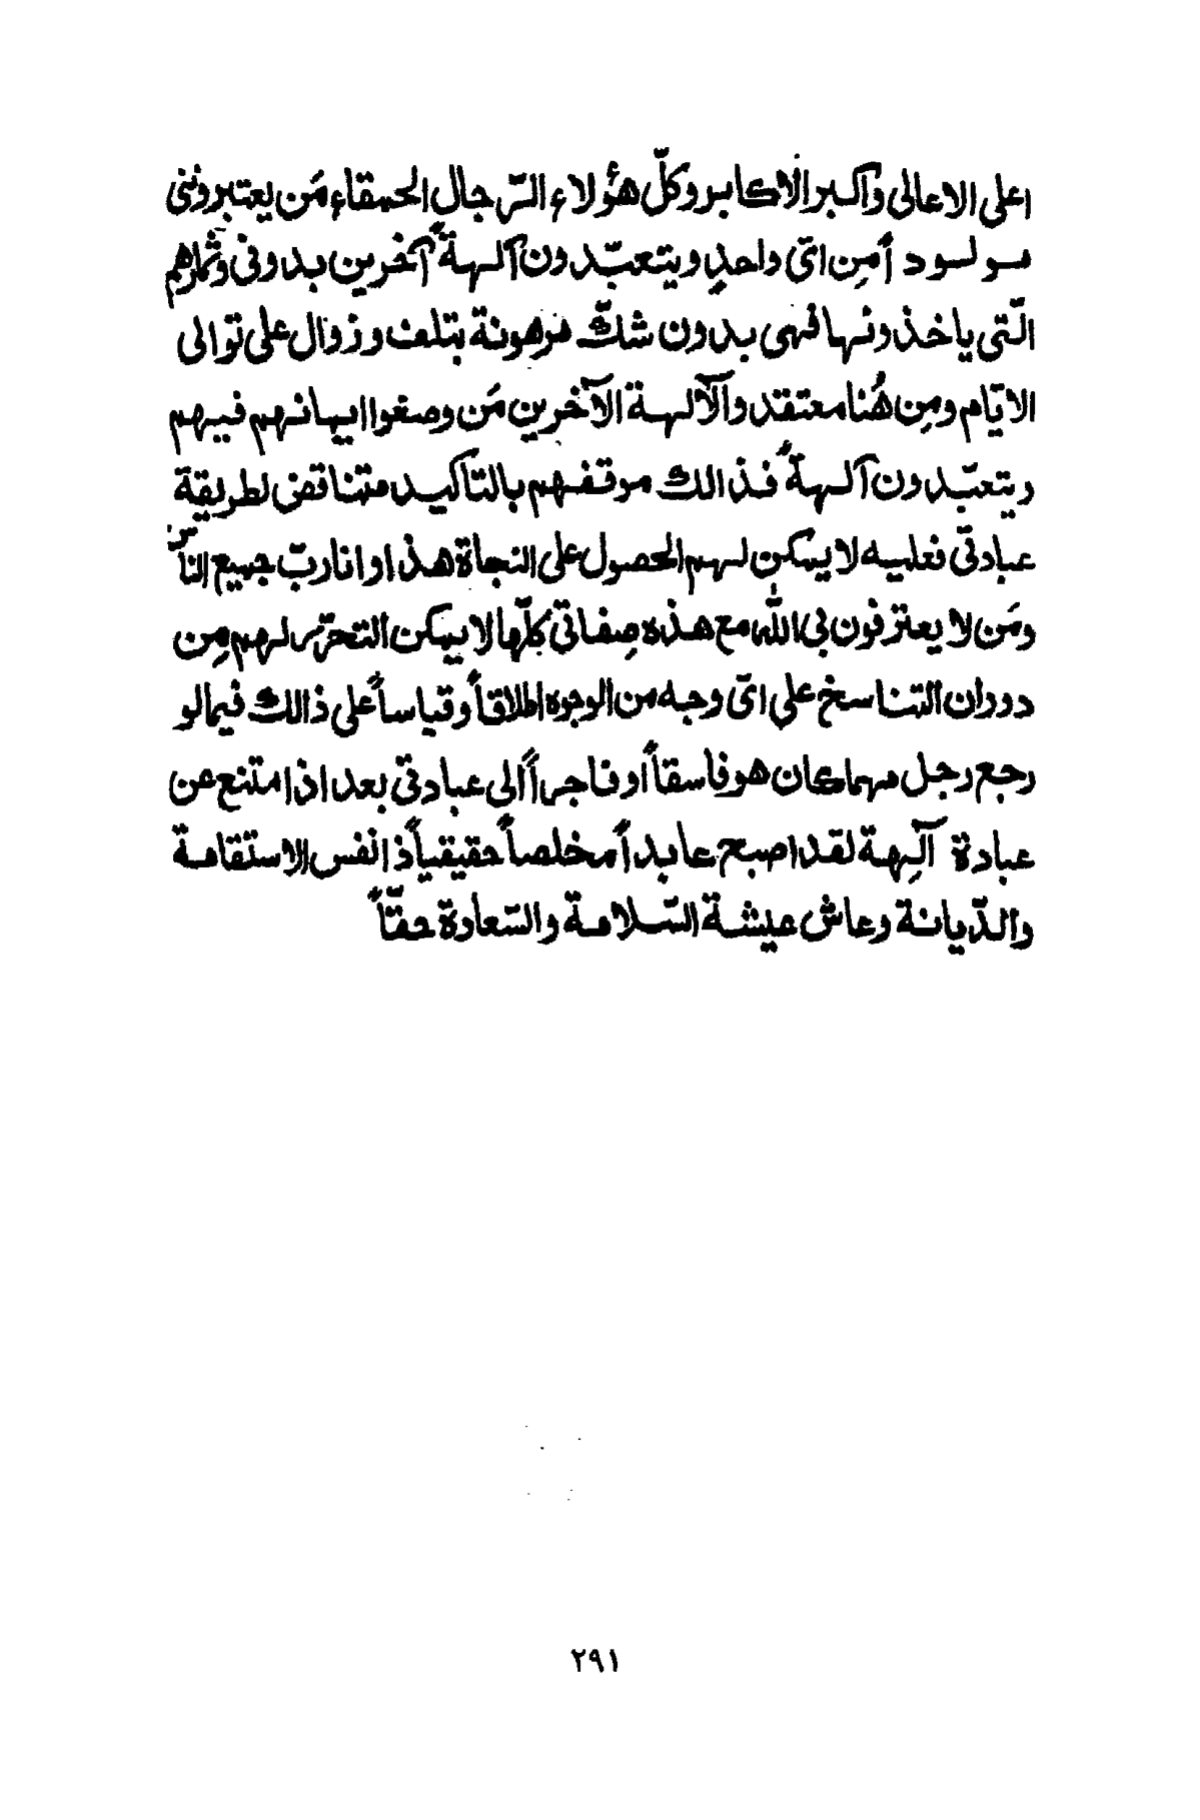 اعلى الاعالى وأكبر الأكابر وكلّ هؤلاء الرّجال الحمقاء مَن يعتبروننى
مولوداً مِن اىّ واحدٍ ويتعبّدون آلهةً آخرين بدونى وثمارهم
الّتى ياخذونها فهى بدون شكّ مرهونة بتلف وزوال على توالى
الايّام ومِن هُنا معتقدو الآلهة الآخرين مَن وضعوا ايمانهم فيهم
ويتعبّدون آلهةً فذالك موقفهم بالتأكيد متناقض لطريقة
عبادتى فعليه لا يمكن لهم الحصول على النجاة هذا وانا ربّ جميع النّاس
ومَن لا يعترفون بى اللّٰه مع هذه صِفاتى كلّها لا يمكن التحرّر لهم مِن
دوران التناسخ على اىّ وجه من الوجوه اطلاقاً وقياساً على ذالك فيما لو
رجع رجل مهما كان هو فاسقاً او فاجراً الى عبادتى بعد اذا متنع عن
عبادة آلِهة لقد اصبح عابداً مخلصاً حقيقياً ذا نفس الاستقامة
والدّيانة وعاش عيشة السّلامة والسّعادة حقّاً
٢٩١